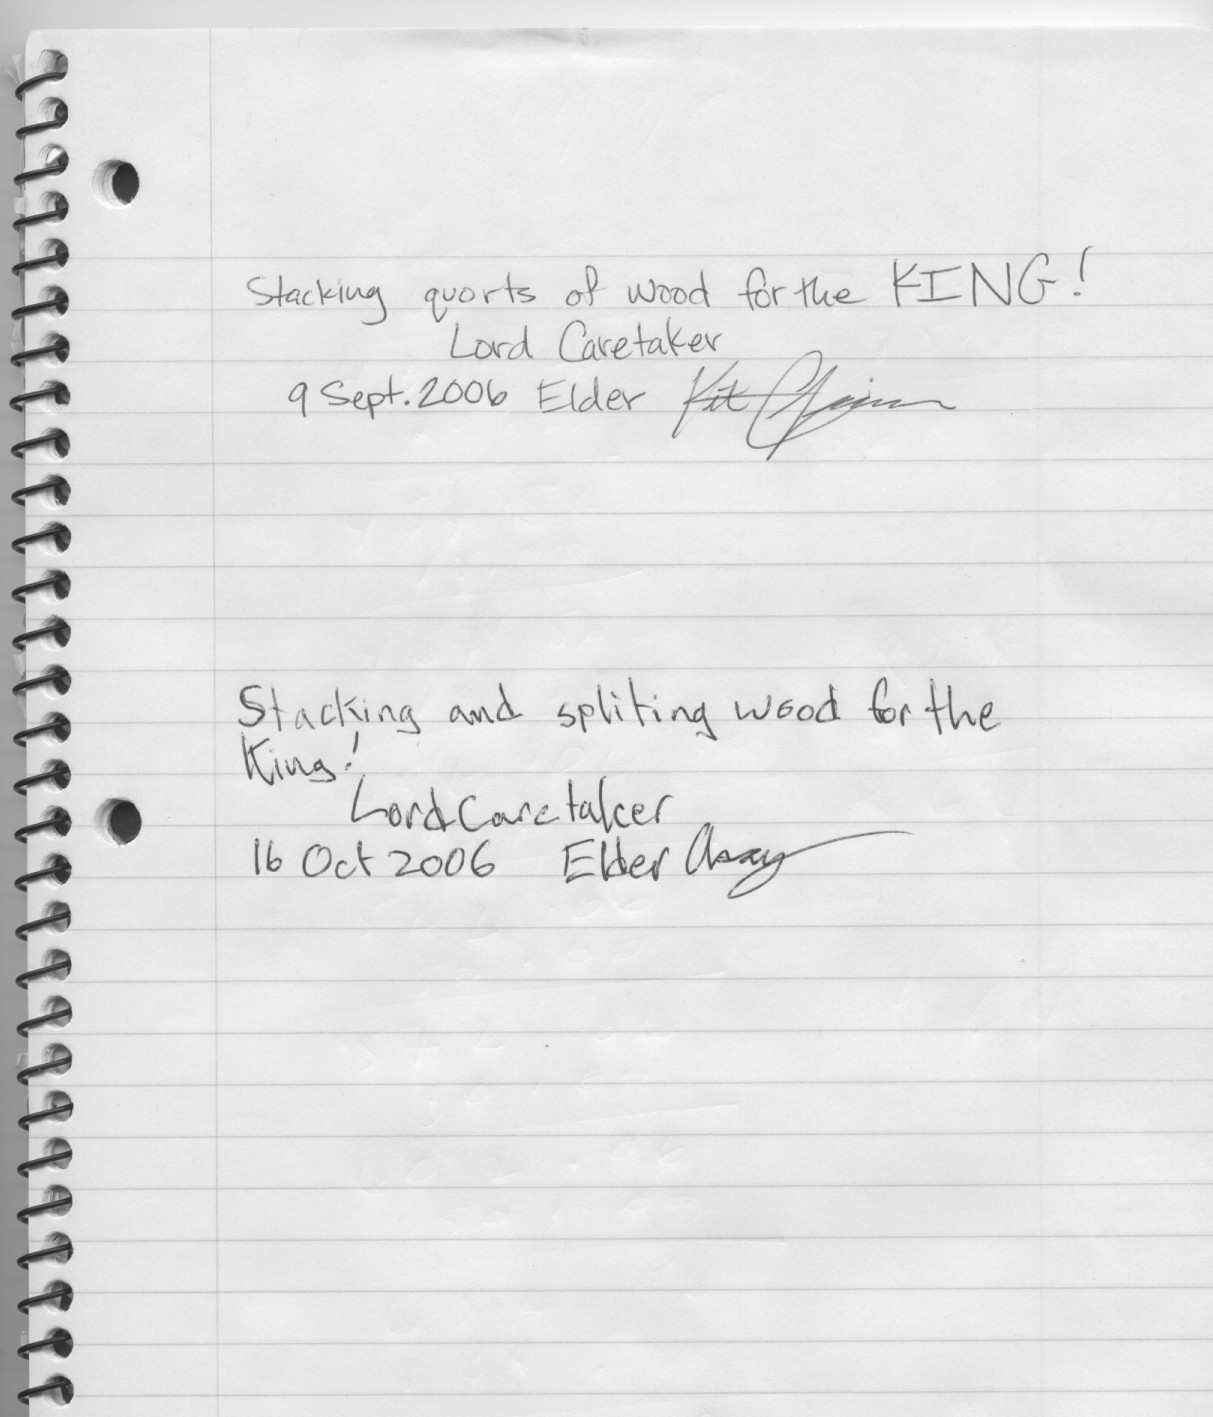 Stacking quorts of wood for the KING!
Lord Caretaker
9 Sept. 2006 Elder Kit
Stacking and spliting wood for the
King!
Lord Caretaker
16 Oct 2006 Elder